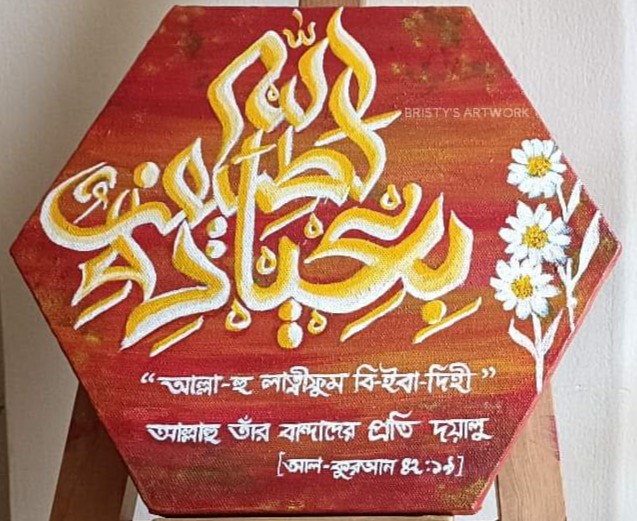 الله لطيف بعباده
BRISTY'S ARTWORK
“আল্লা-হু লাত্বীফুম বি-ইবা-দিহী”
আল্লাহু তাঁর বান্দাদের প্রতি দয়ালু
[আল-কুরআন ৪২:১৯]